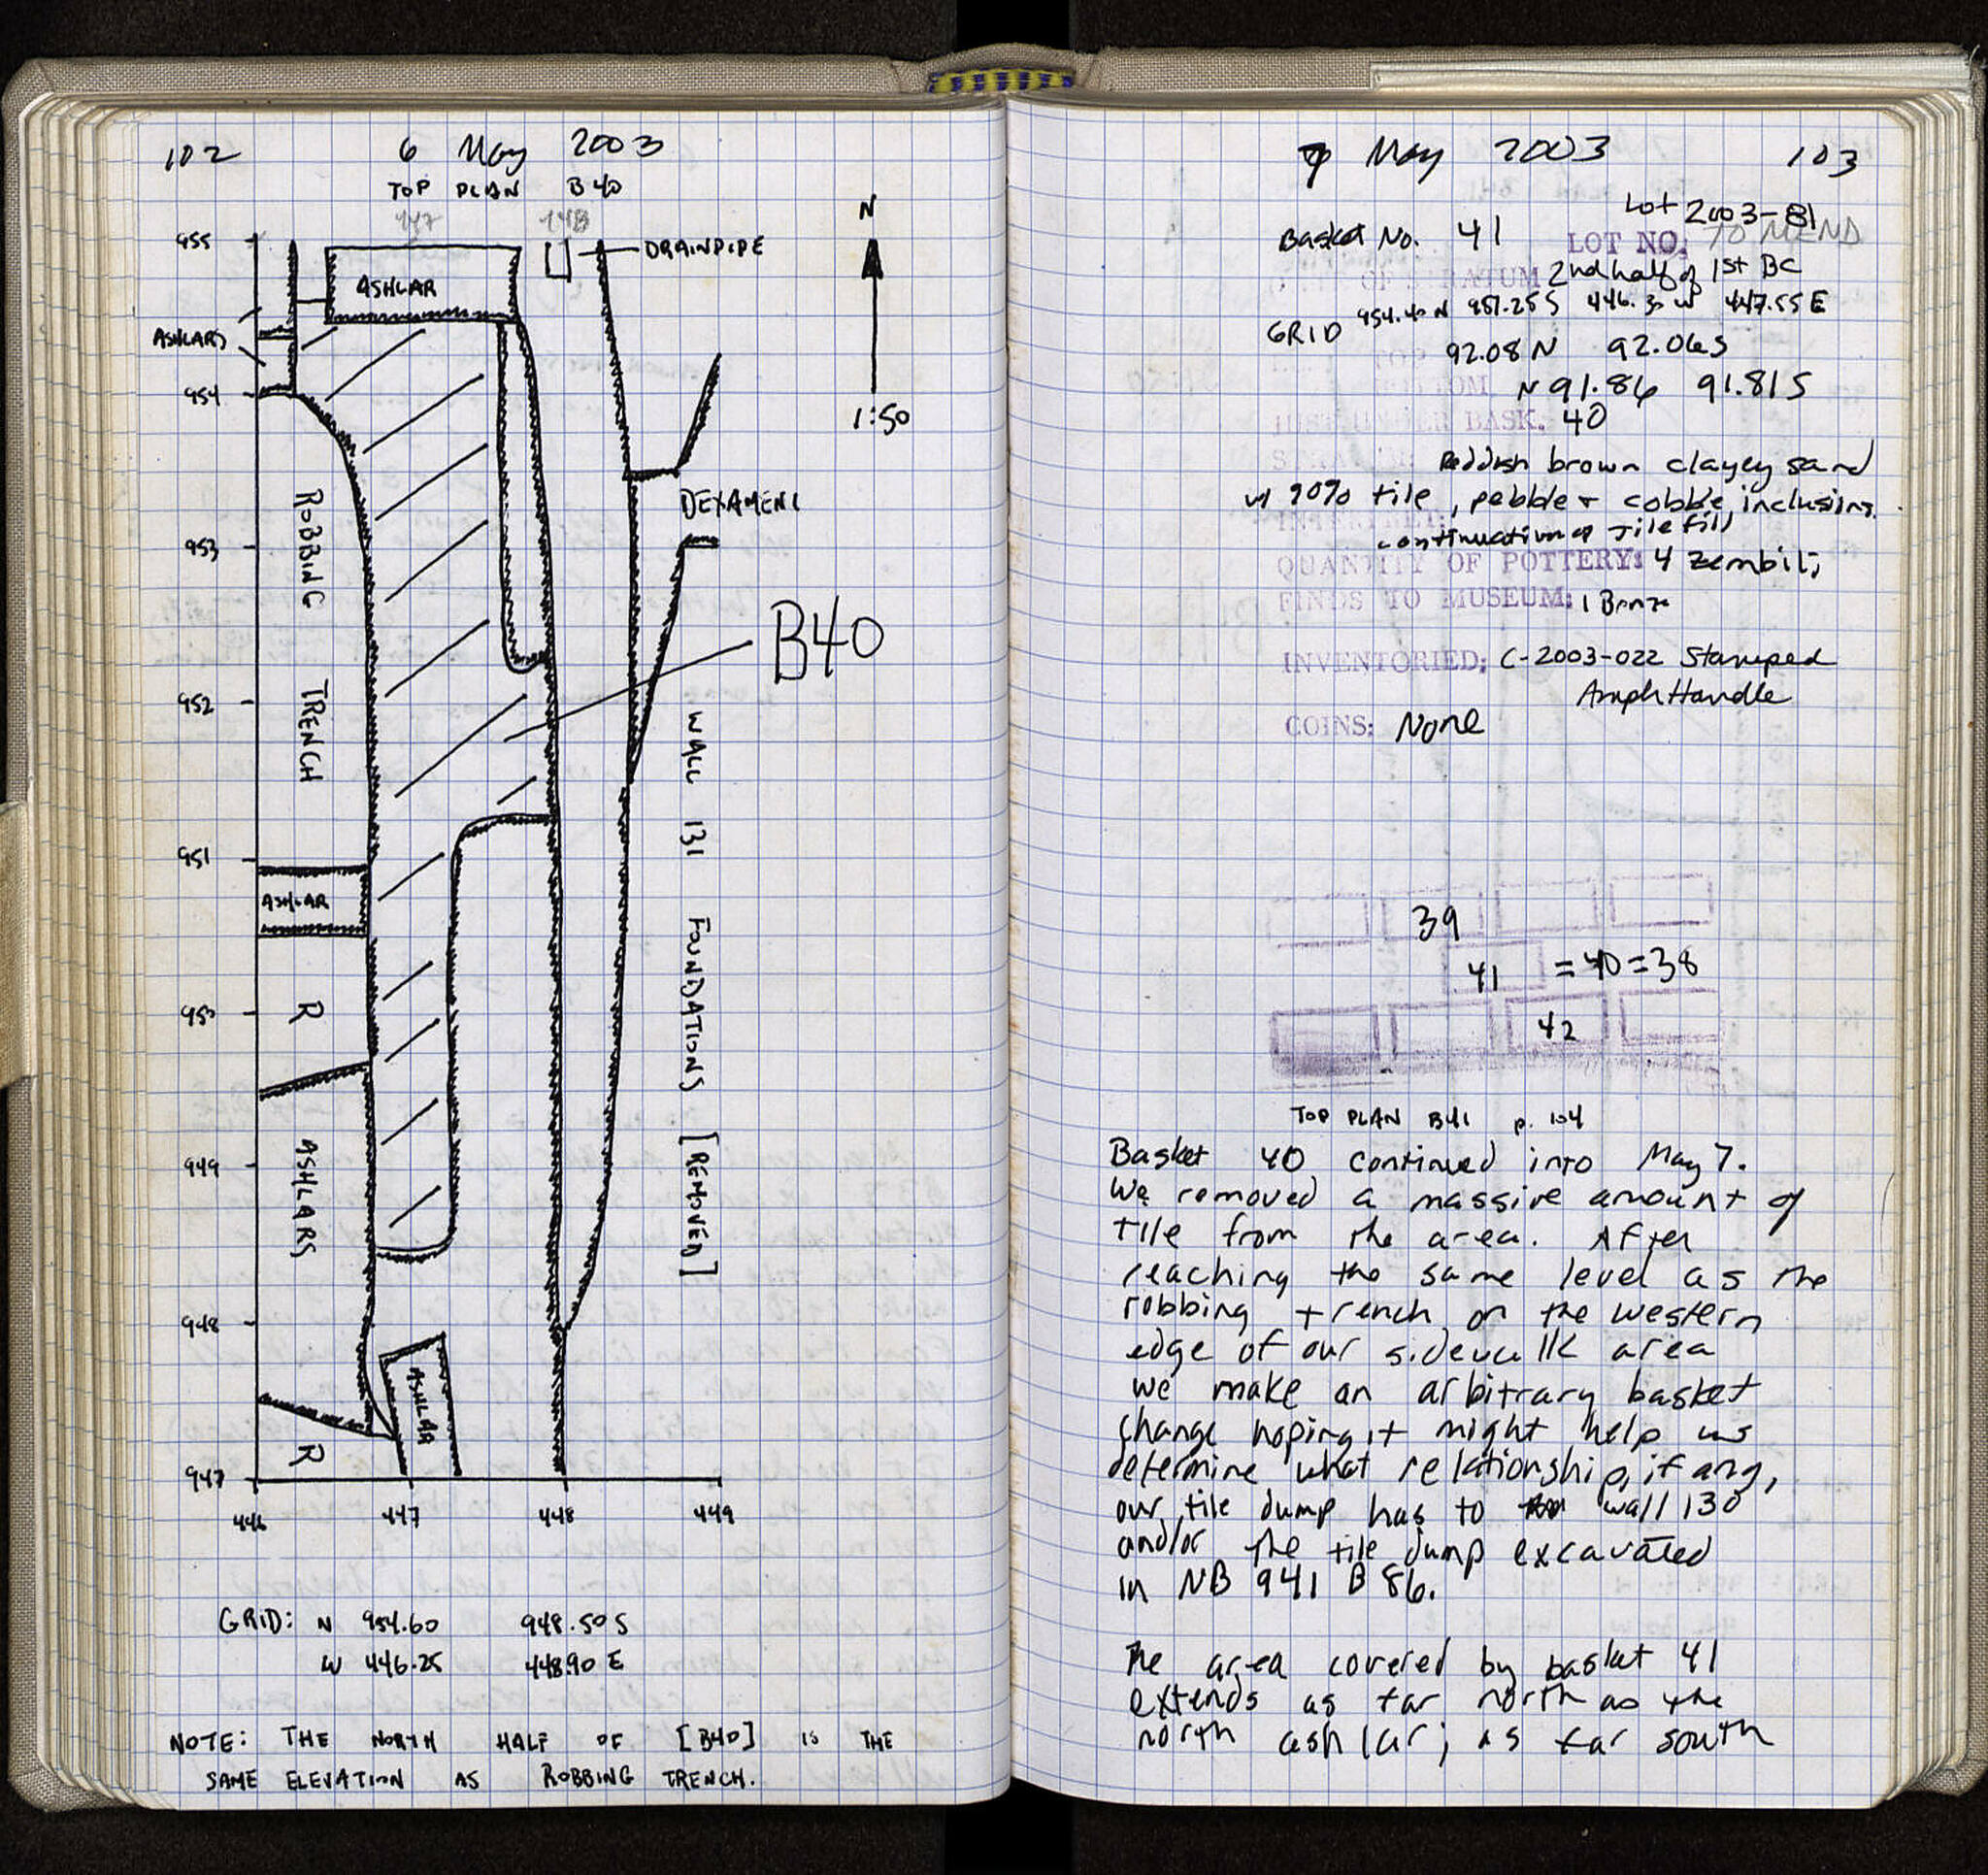 102
6 May 2003
TOP PLAN B40
447 448
N
1:50
955
954
953
952
951
950
949
948
947
446 447 448 449
ASHLAR
DRAINPIPE
ASHLARS
DEXAMENI
B40
ROBBING TRENCH
WALL 131 FOUNDATIONS [REMOVED]
ASHLAR
R
ASHLARS
ASHLAR
R
GRID: N 954.60 948.50 S
W 446.25 448.90 E
NOTE: THE NORTH HALF OF [B40] IS THE
SAME ELEVATION AS ROBBING TRENCH.
7 May 2003 103
Lot 2003-81
Basket No. 41 LOT NO. TO MEND
OF STRATUM 2nd half of 1st BC
GRID 954.40 N 951.25 S 446.3 W 447.55 E
TOP 92.08 N 92.06 S
BOTTOM N 91.86 91.81 S
JUST UNDER BASK. 40
STRATUM: Reddish brown clayey sand
w/ 90% tile, pebble + cobble inclusions.
continuation of Tile fill
QUANTITY OF POTTERY: 4 zembili;
FINDS TO MUSEUM: 1 Bronze
INVENTORIED: C-2003-022 Stamped
Amph Handle
COINS: None
39
41 = 40 = 38
42
TOP PLAN B41 p. 104
Basket 40 continued into May 7.
We removed a massive amount of
tile from the area. After
reaching the same level as the
robbing trench on the western
edge of our sidewalk area
we make an arbitrary basket
change hoping it might help us
determine what relationship, if any,
our tile dump has to wall 130
and/or the tile dump excavated
in NB 941 B 86.
The area covered by basket 41
extends as far north as the
north ashlar; as far south